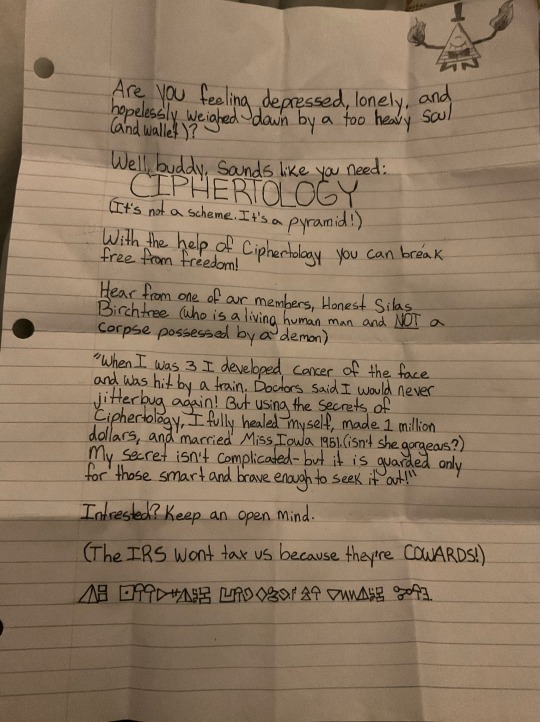 Are you feeling depressed, lonely, and
hopelessly weighed down by a too heavy soul
(and wallet)?
Well, buddy, sounds like you need:
CIPHERTOLOGY
(It's not a scheme. It's a pyramid!)
With the help of Ciphertology you can break
free from freedom!
Hear from one of our members, Honest Silas
Birchtree (who is a living human man and NOT a
corpse possessed by a demon)
"When I was 3 I developed cancer of the face
and was hit by a train. Doctors said I would never
jitterbug again! But using the secrets of
Ciphertology, I fully healed myself, made 1 million
dollars, and married Miss Iowa 1951. (isn't she gorgeous?)
My secret isn't complicated - but it is guarded only
for those smart and brave enough to seek it out!"
Intrested? Keep an open mind.
(The IRS wont tax us because they're COWARDS!)